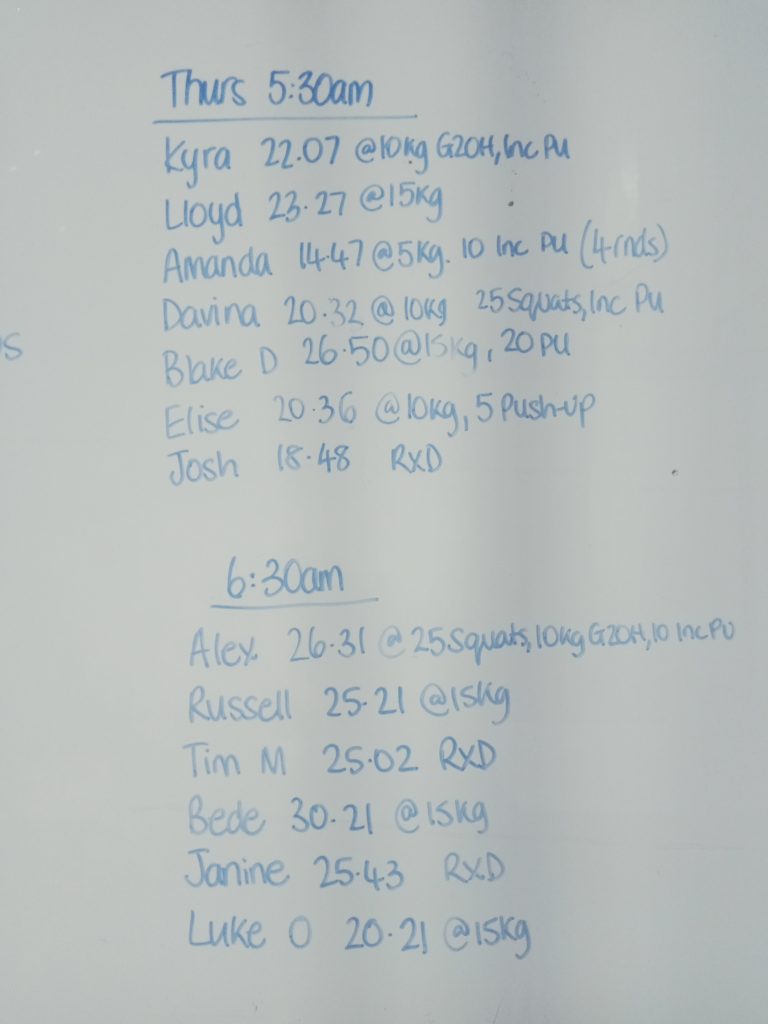 Thurs 5:30am
Kyra 22.07 @10kg G2OH, Inc PU
Lloyd 23.27 @15kg
Amanda 14.47 @5kg. 10 Inc PU (4 rnds)
Davina 20.32 @ 10kg 25 Squats, Inc PU
Blake D 26.50 @15kg, 20 PU
Elise 20.36 @10kg, 5 Push-up
Josh 18.48 RxD
6:30am
Alex 26.31 @ 25 Squats, 10kg G2OH, 10 Inc PU
Russell 25.21 @15kg
Tim M 25.02 RxD
Bede 30.21 @15kg
Janine 25.43 RxD
Luke O 20.21 @15kg